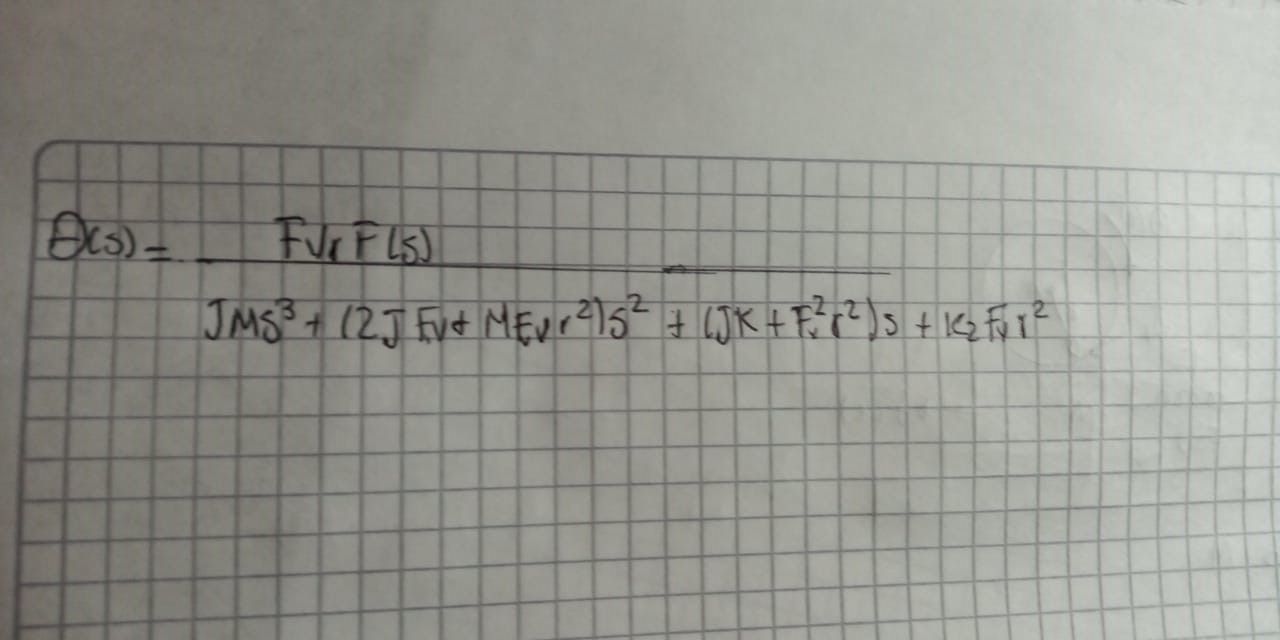 Θ(s) = FvrF(s)
JMS³ + (2JFv + MFvr²)S² + (JK + Fv²r²)s + K₂Fvr²